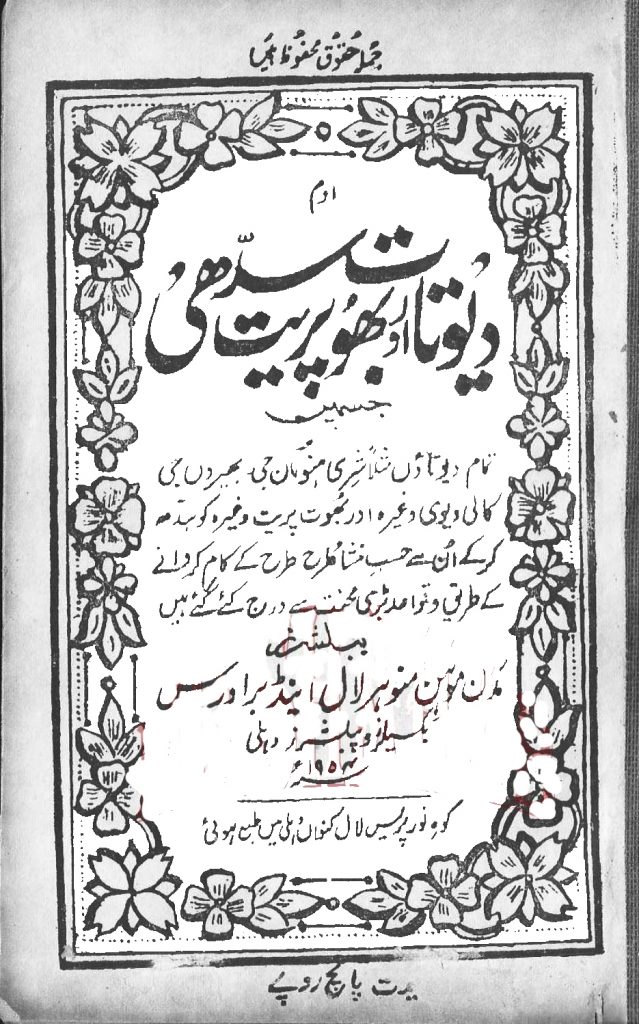 جملہ حقوق محفوظ ہیں
اوم
دیوتا اور بھوت پریت سدّھی
جسمیں
تمام دیوتاؤں مثلاً شری ہنومان جی۔ بھیروں جی
کالی دیوی وغیرہ اور بھوت پریت وغیرہ کو سدھ
کرکے اُن سے حسب منشا طرح طرح کے کام کروانے
کے طریق و قواعد بڑی محنت سے درج کئے گئے ہیں
پبلشرز
مدن موہن منوہر لال اینڈ برادرس
بکسیلرز و پبلشرز دہلی
کوہ نور پریس لال کنواں دہلی میں طبع ہوئی
پانچ روپے